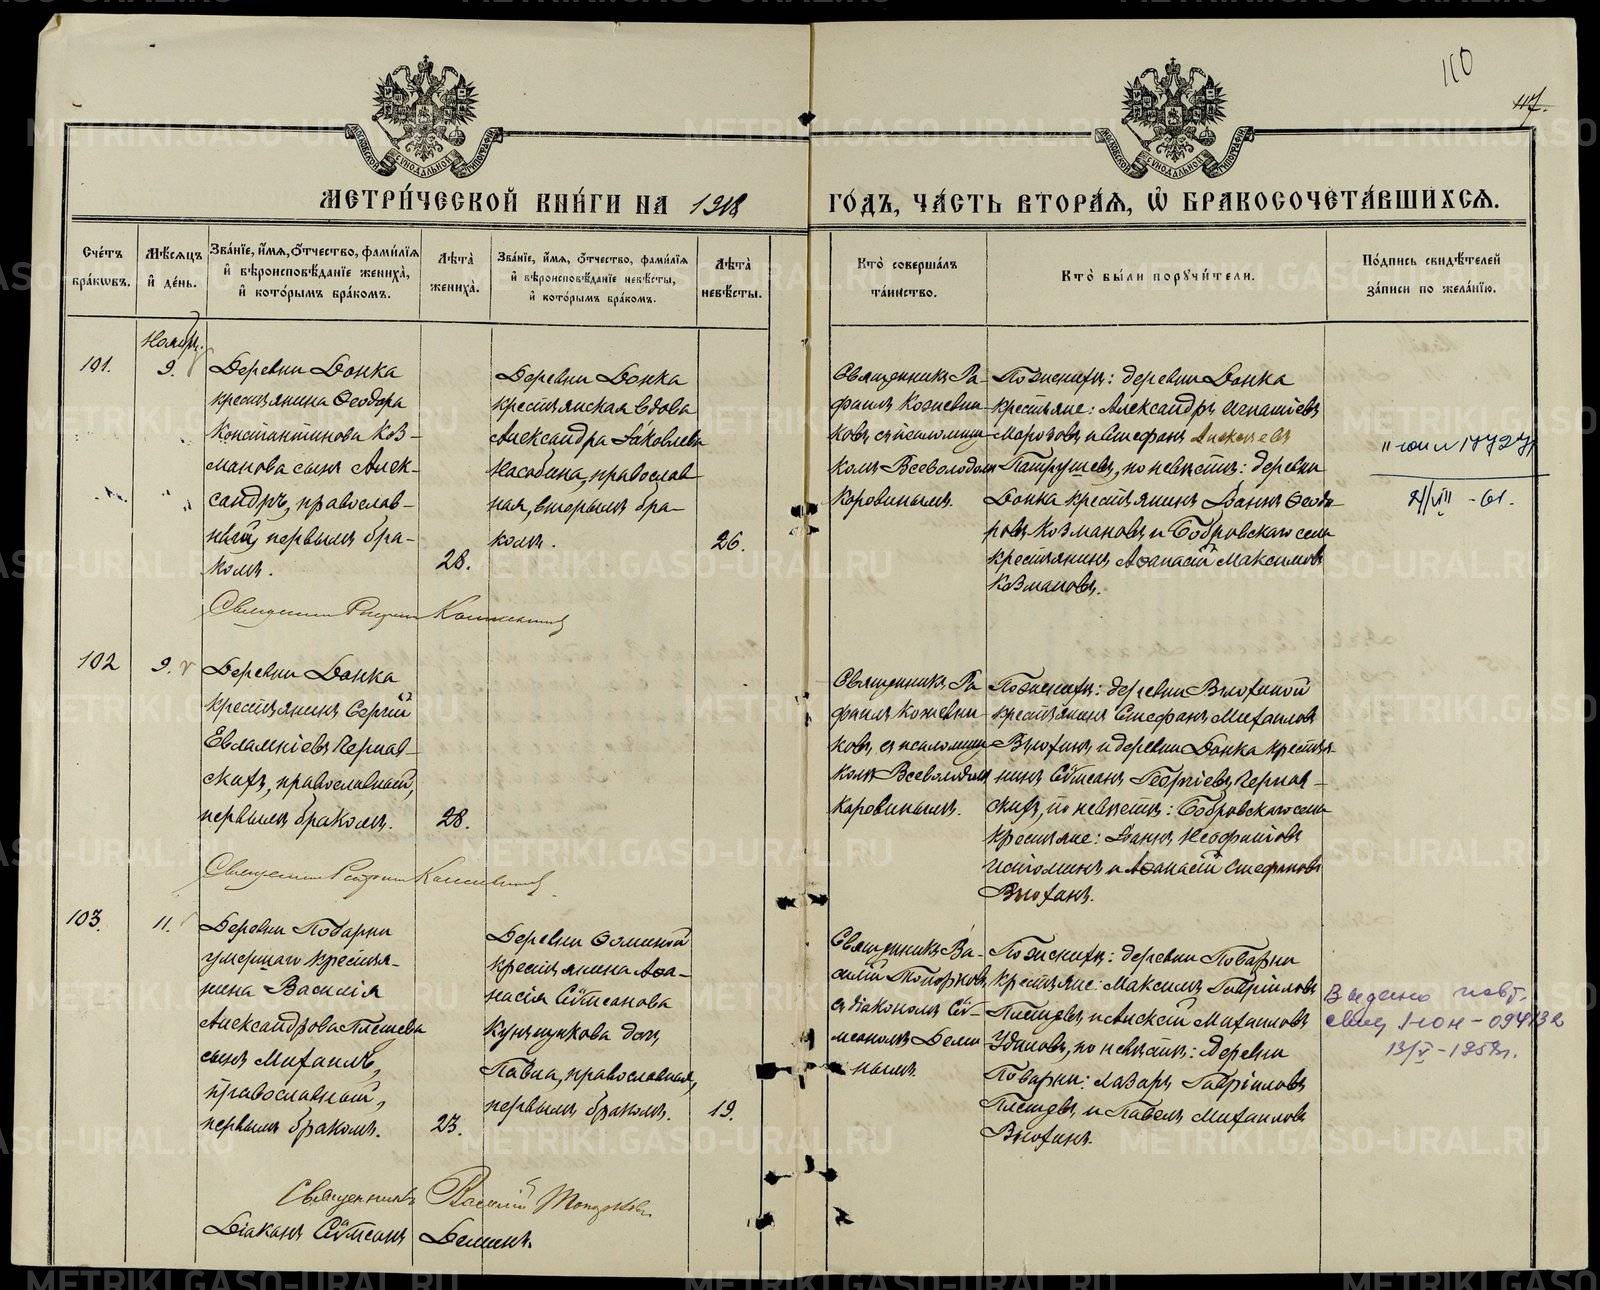 110
117.
МЕТРИ́ЧЕСКОЙ КНИ́ГИ НА 1918
ГО́ДЪ, ЧА́СТЬ ВТОРА́Я, Ѿ БРАКОСОЧЕТА́ВШИХСЯ.
Сче́тъ бра́кѡвъ.
Мѣ́сяцъ и҆ де́нь.
Зва́нїе, и҆́мя, ѻ҆́тчество, фами́лїя
и҆ вѣроисповѣ́данїе жениха̀,
и҆ кото́рымъ бра́комъ.
Лѣ́та жениха̀.
Зва́нїе, и҆́мя, ѻ҆́тчество, фами́лїя
и҆ вѣроисповѣ́данїе невѣ́сты,
и҆ кото́рымъ бра́комъ.
Лѣ́та невѣ́сты.
Кто̀ соверша́лъ
та́инство.
Кто̀ бы́ли порꙋчи́тели.
По́дпись свидѣ́телей
за́писи по жела́нїю.
Ноябрь
101.
9.
Деревни Донка
крестьянина Ѳеодора
Константинова Коз-
манова сынъ Алек-
сандръ, православ-
ный, первымъ бра-
комъ.
28.
Деревни Донка
крестьянская вдова
Александра Іаковлева
Насобина, православ-
ная, вторымъ бра-
комъ.
26.
Священникъ Ра-
фаилъ Кожевни-
ковъ съ псаломщи-
комъ Всеволодомъ
Коровинымъ.
По женихѣ: деревни Донка
крестьяне: Александръ Игнатіевъ
Морозовъ и Стефанъ Алексѣевъ
Патрушевъ, по невѣстѣ: деревни
Донка крестьянинъ Іоаннъ Ѳеодо-
ровъ Козмановъ и Бобровскаго села
крестьянинъ Аѳанасій Максимовъ
Козмановъ.
Священникъ Рафаилъ Кожевниковъ
102
9.
Деревни Донка
крестьянинъ Сергій
Евлампіевъ Черпав-
скихъ, православный,
первымъ бракомъ.
28.
Священникъ Ра-
фаилъ Кожевни-
ковъ, съ псаломщи-
комъ Всеволодомъ
Коровинымъ.
По женихѣ: деревни Вьюхиной
крестьянинъ Стефанъ Михаиловъ
Вьюхинъ, и деревни Донка крестья-
нинъ Сѵмеонъ Георгіевъ Черпав-
скихъ, по невѣстѣ: Бобровскаго села
крестьяне: Іоаннъ Неофитовъ
Истоминъ и Аѳанасій Стефановъ
Вьюхинъ.
Священникъ Рафаилъ Кожевниковъ
103.
11.
Деревни Поварни
умершаго крестья-
нина Василія
Александрова Плешева
сынъ Михаилъ,
православный,
первымъ бракомъ.
23.
Деревни Ѳоминой
крестьянина Аѳа-
насія Сѵмеонова
Кунщикова дочь
Павла, православная,
первымъ бракомъ.
19.
Священникъ Ва-
силій Топорковъ
съ діакономъ Сѵ-
меономъ Беми-
нымъ.
По женихѣ: деревни Поварни
крестьяне: Максимъ Гавріиловъ
Плешевъ и Алексій Михаиловъ
Удиловъ, по невѣстѣ: Деревни
Поварни: Лазарь Гавріиловъ
Плешевъ и Павелъ Михаиловъ
Вьюхинъ.
Выдано повт.
свид I-юн-094132
13/V-195
Священникъ Василій Топорковъ
Діаконъ Сѵмеонъ Беминъ.